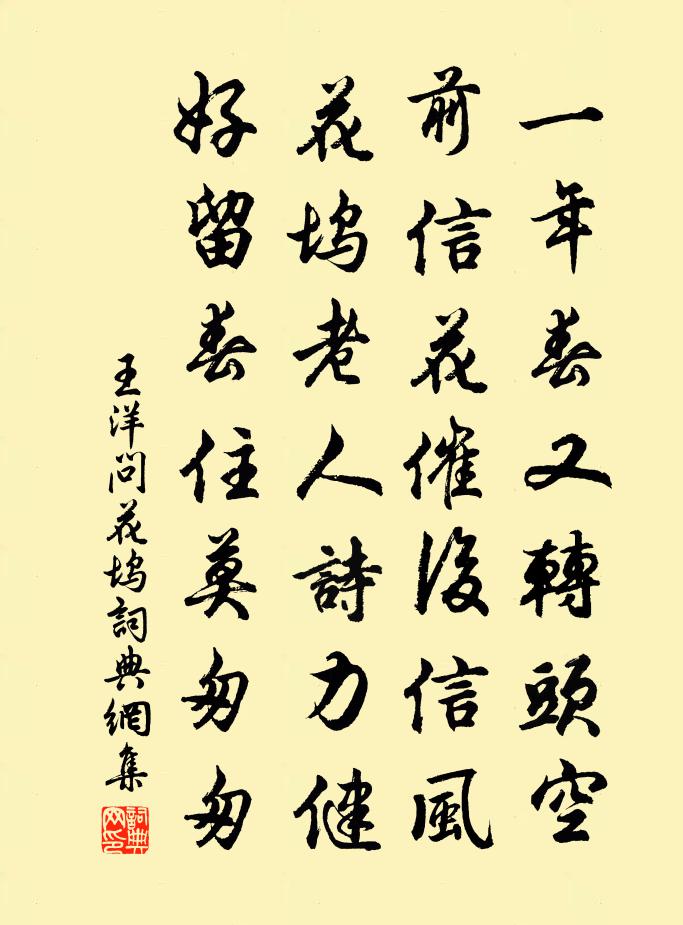 一年春又轉頭空
前信花催後信風
花塢老人詩力健
好留春住莫匆匆
王洋問花塢詞典網集
詞典網印